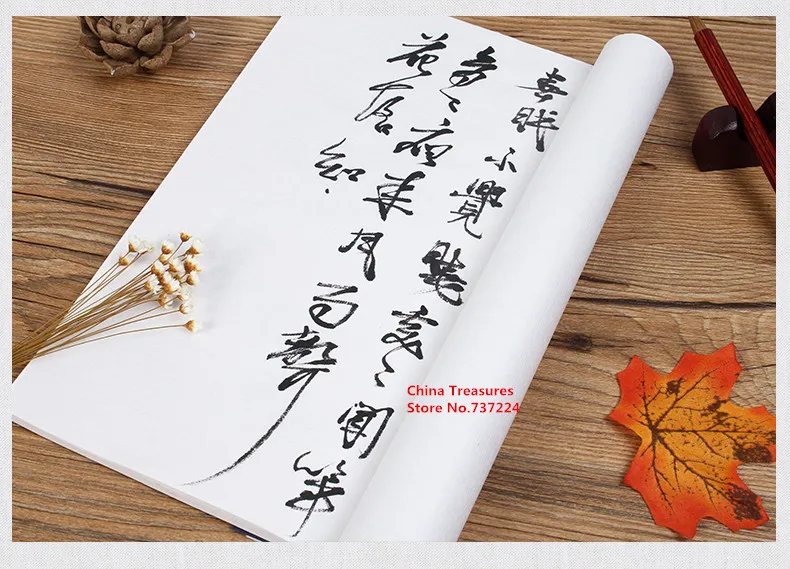 春眠不覺曉處〻聞啼
鳥夜來風雨聲
花落知
China Treasures
Store No.737224